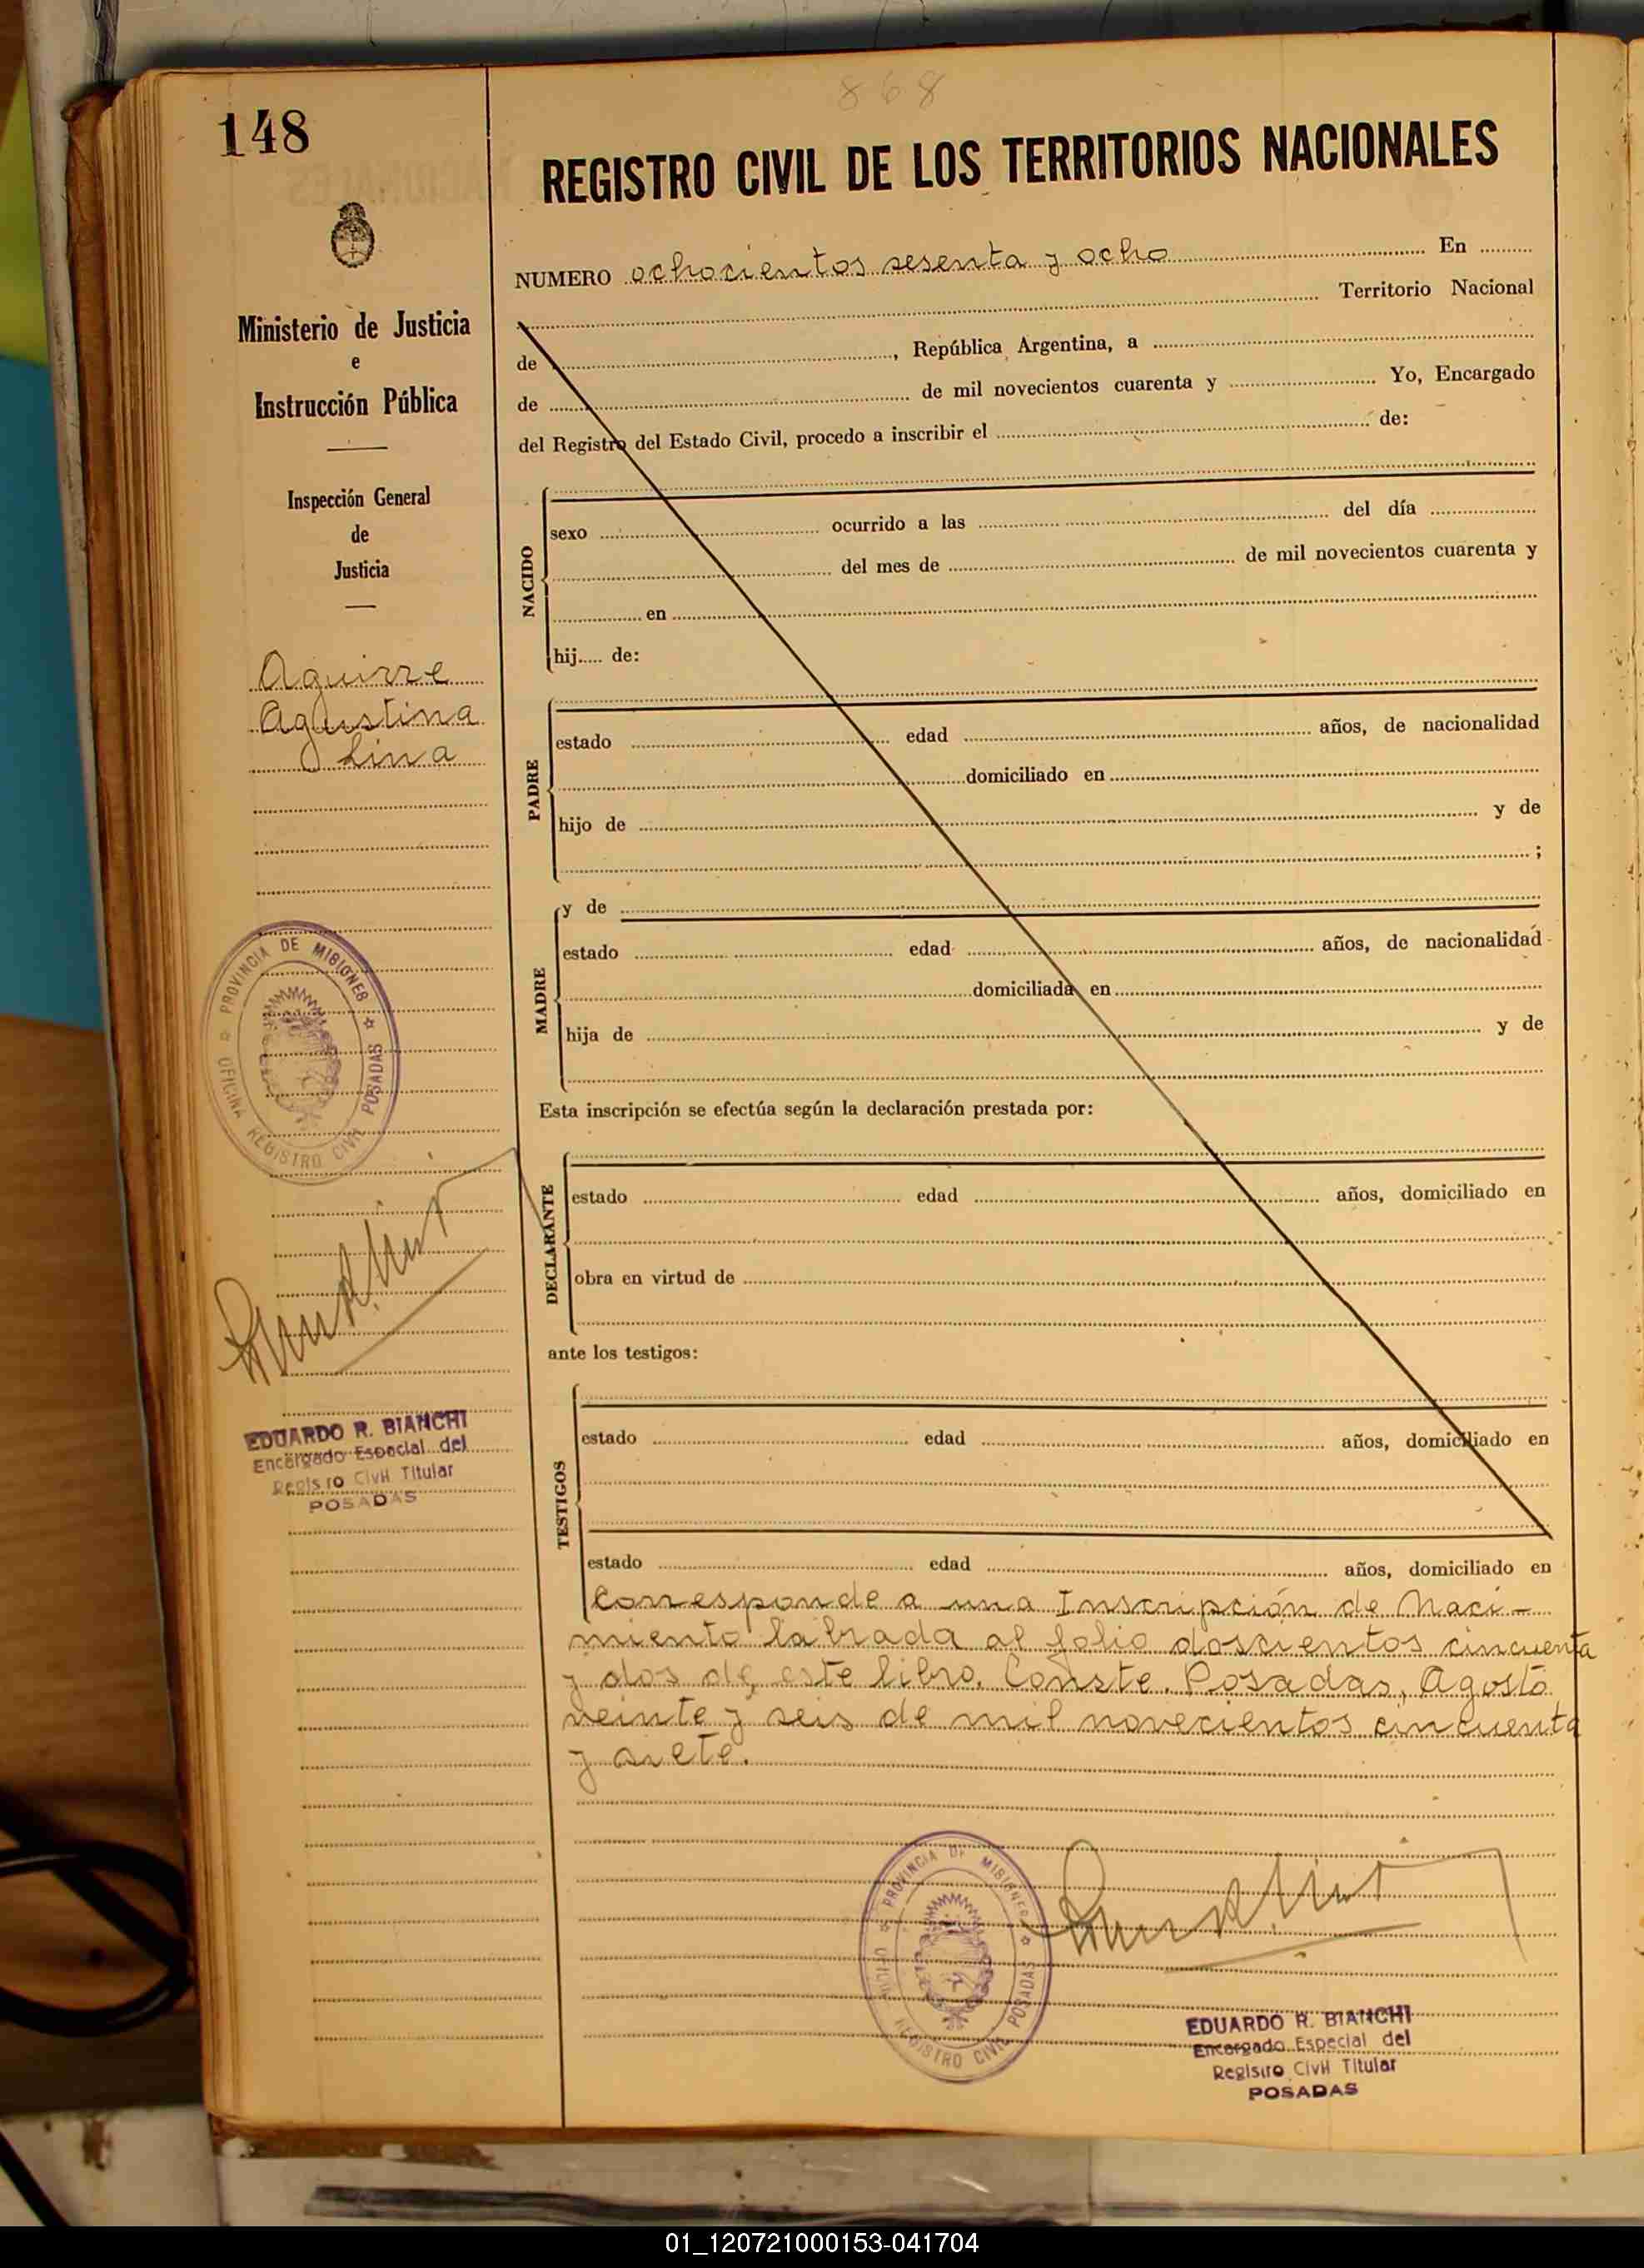 868
148
REGISTRO CIVIL DE LOS TERRITORIOS NACIONALES
NUMERO ochocientos sesenta y ocho En
Territorio Nacional
de , República Argentina, a
de de mil novecientos cuarenta y Yo, Encargado
del Registro del Estado Civil, procedo a inscribir el de:
Ministerio de Justicia
e
Instrucción Pública
Inspección General
de
Justicia
Aguirre
Agustina
Lina
PROVINCIA DE MISIONES
OFICINA REGISTRO CIVIL POSADAS
EDUARDO R. BIANCHI
Encargado Especial del
Registro Civil Titular
POSADAS
NACIDO
sexo ocurrido a las del día
del mes de de mil novecientos cuarenta y
en
hij..... de:
PADRE
estado edad años, de nacionalidad
domiciliado en
hijo de y de
;
MADRE
y de
estado edad años, de nacionalidad
domiciliada en
hija de y de
Esta inscripción se efectúa según la declaración prestada por:
DECLARANTE
estado edad años, domiciliado en
obra en virtud de
ante los testigos:
TESTIGOS
estado edad años, domiciliado en
estado edad años, domiciliado en
Corresponde a una Inscripción de Naci-
miento labrada al folio doscientos cincuenta
y dos de este libro. Conste. Posadas, Agosto
veinte y seis de mil novecientos cincuenta
y siete.
PROVINCIA DE MISIONES
OFICINA REGISTRO CIVIL POSADAS
EDUARDO R. BIANCHI
Encargado Especial del
Registro Civil Titular
POSADAS
01_120721000153-041704